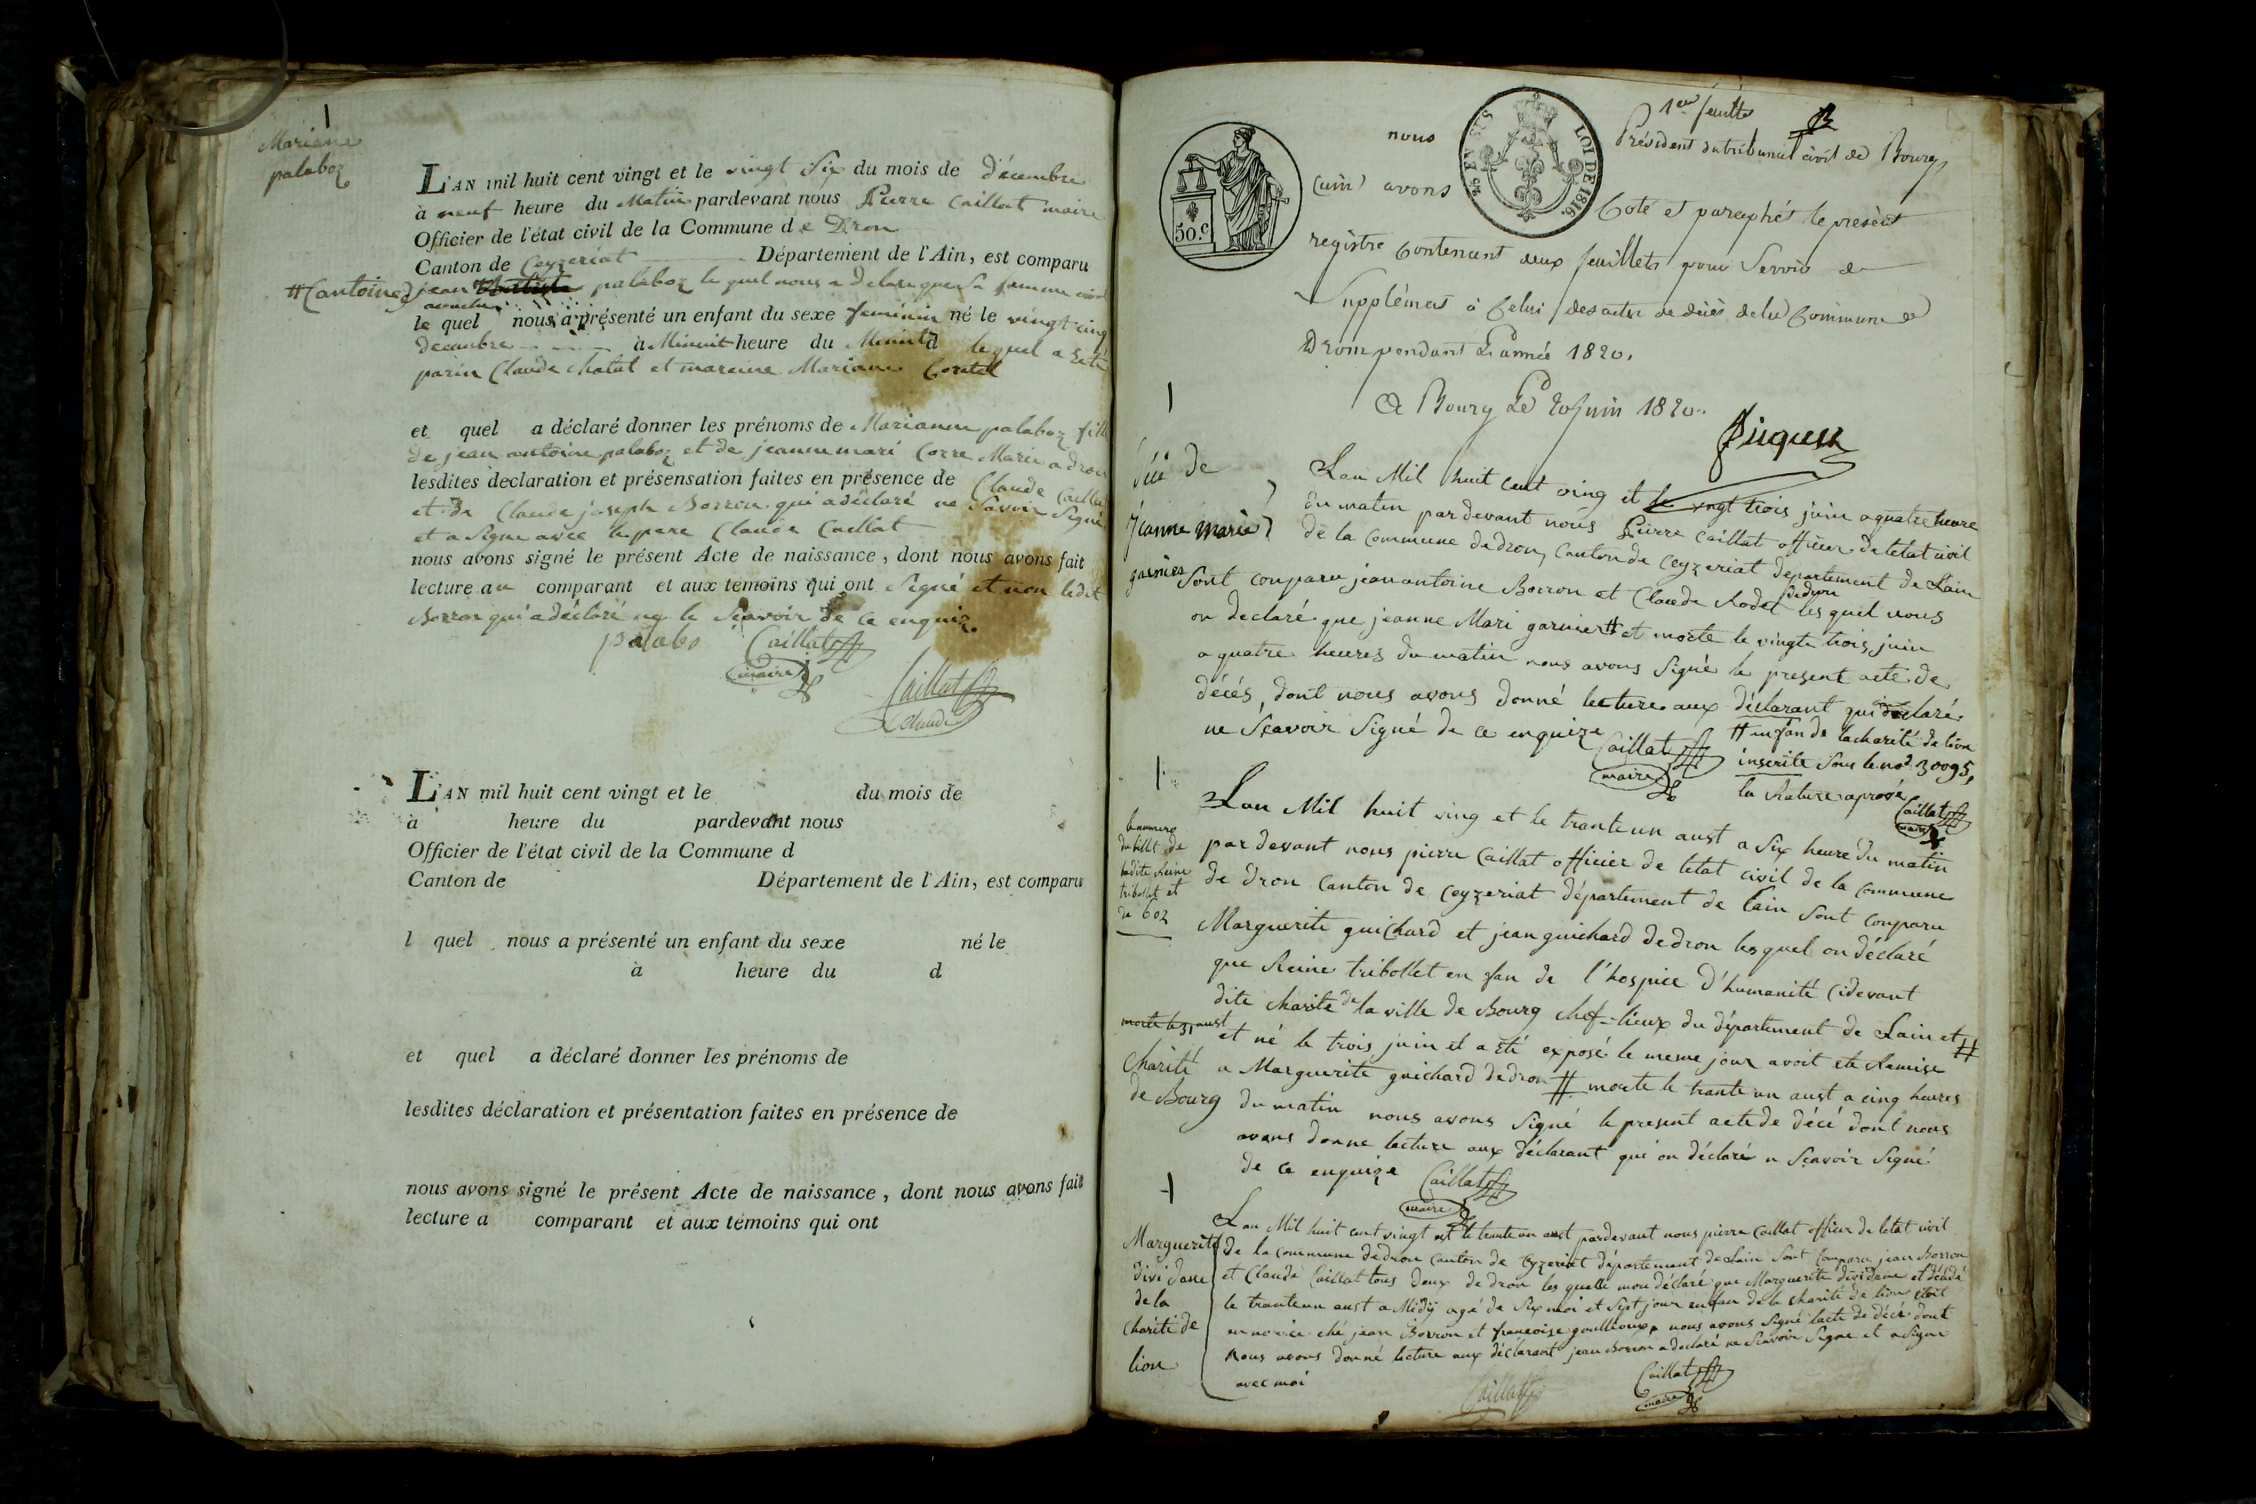 Mariane
palaboz
L'AN mil huit cent vingt et le vingt Six du mois de décembre
à neuf heure du Matin pardevant nous Pierre Caillat maire
Officier de l'état civil de la Commune de Dron
Canton de Ceyzeriat Département de l'Ain, est comparu
#(antoine) jean palaboz le quel nous a
le quel nous a présenté un enfant du sexe feminin né le vingt cinq
decembre à Minuit heure du Minuit d le quel a
parin Claude chatal et mareine Mariane
et quel a déclaré donner les prénoms de Marianne palaboz fille
de jean antoine palaboz et de jeanne mari Corre Marié a dron
lesdites declaration et présensation faites en présence de Claude Caillat
et de Claude joseph Borron qui a déclaré ne Savoir Signé
et a Signe avec le pere Claude Caillat
nous avons signé le présent Acte de naissance, dont nous avons fait
lecture au comparant et aux temoins qui ont Signé et non ledit
Borron qui a déclaré ne le Scavoir de ce enquiz.
palabo Caillat
maire
Caillat
Claude
L'AN mil huit cent vingt et le du mois de
à heure du pardevant nous
Officier de l'état civil de la Commune d
Canton de Département de l'Ain, est comparu
l quel nous a présenté un enfant du sexe né le
à heure du d
et quel a déclaré donner les prénoms de
lesdites déclaration et présentation faites en présence de
nous avons signé le présent Acte de naissance, dont nous avons fait
lecture a comparant et aux témoins qui ont
1er feuillet
50.c
LOI DE 1816.
nous Président du tribunal civil de Bourg
(ain) avons Coté et paraphé le présent
registre Contenant deux feuillets pour Servir de
Supplément à Celui des actes de décès de la Commune de
Drom pendant l'année 1820.
A Bourg Le 20 juin 1820.
de
jeanne marie
garnier
Lan Mil huit cent ving et le vingt trois juin a quatre heure
du matin par devant nous Pierre Caillat officier de letat civil
de la Commune de dron, Canton de Ceyzeriat departement de Lain
Sont conparu jean antoine Borron et Claude Rodet de dron les quel nous
on declaré que jeanne Mari garnier # et morte le vingte trois juin
a quatre heures du matin nous avons Signé le present acte de
décés, dont nous avons donné lecture aux déclarant qui on déclaré
ne Sçavoir Signé de ce enquize
Caillat
maire
# enfan de la charité de lion
inscrite Sous le no. 30095,
la Rature aprové
Caillat
maire
le numero
du billt de
ladite Reine
tribollet et
de 602
Lan Mil huit ving et le trante un aust a Six heure du matin
par devant nous pierre Caillat officier de letat civil de la commune
de dron Canton de Ceyzeriat département de Lain Sont conparu
Marguerite guichard et jean guichard de dron les quel on déclaré
que Reine tribollet en fan de l'hospice d'humanité Cidevant
dite charité de la ville de Bourg chef-lieux du département de Lain et #
morte le 31 aust
et né le trois juin et a été exposé le meme jour avoit eté Remise
charité
de Bourg
a Marguerite guichard de dron # morte le trante un aust a cinq heures
du matin nous avons Signé le present acte de décé dont nous
avons donne lecture aux déclarant qui on déclaré n Sçavoir Signé
de ce enquize Caillat
maire
Marguerite
dividane
de la
charité de
lion
Lan Mil huit cent vingt est le trante un aust pardevant nous pierre Caillat officier de letat civil
de la commune de dron canton de Ceyzeriat département de Lain Sont Conparu jean Borron
et Claude Caillat tous deux de dron les quelle mon déclaré que Marguerite dividane et décédé
le trante un aust a Midÿ agé de Six moi et Sept jour enfan de la charité de lion étoit
en norice ché jean Borron et francoise goullioux, nous avons Signé lacte de décé dont
Nous avons donné lecture aux déclarant jean Borron a declaré ne Scavoir Signé et a Signe
avec moi
Caillat
Caillat
maire